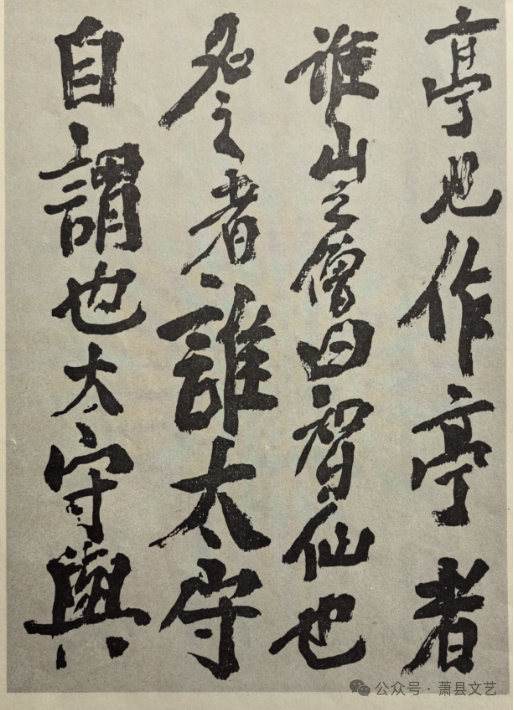 亭也作亭者
誰山之僧曰智仙也
名之者誰太守
自謂也太守與
公众号·萧县文艺